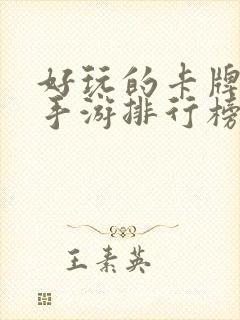 好玩的卡牌
手游排行榜
王素英